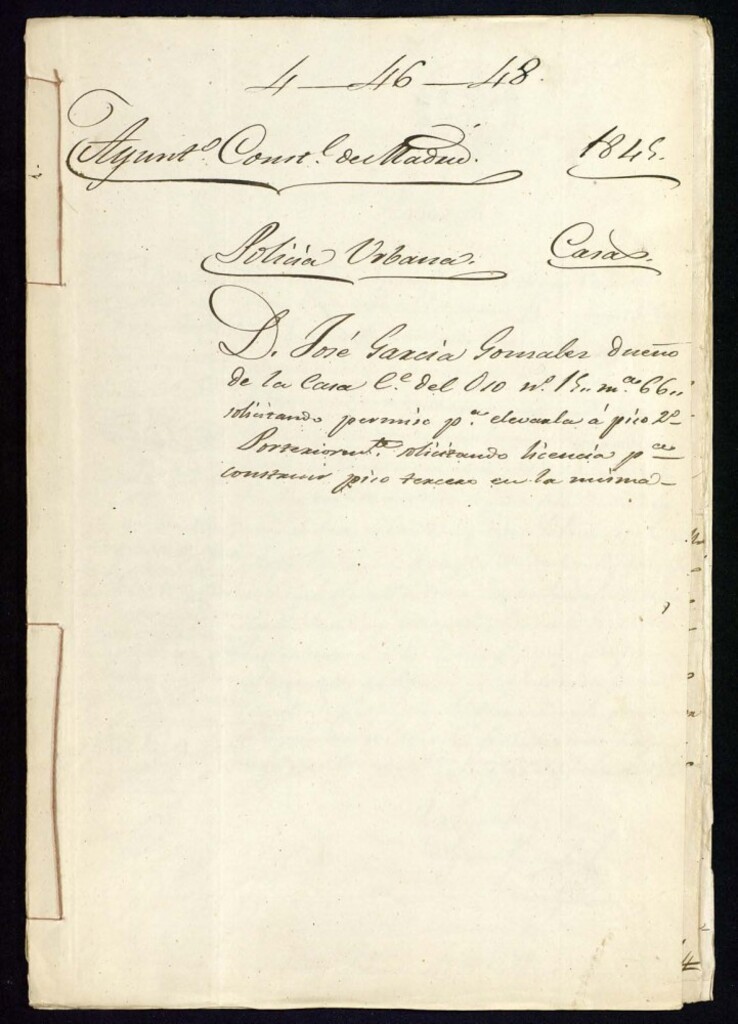 4-46-48.
Ayuntº. Constl. de Madrid. 1845.
Policía Urbana. Casas.
D. José García Gonzalez dueño
de la Casa Ce. del Oso nº. 15,, mna. 66,,
solicitando permiso pa. elevarla á piso 2º
Posteriormte. solicitando licencia pa
construir piso tercero en la misma-